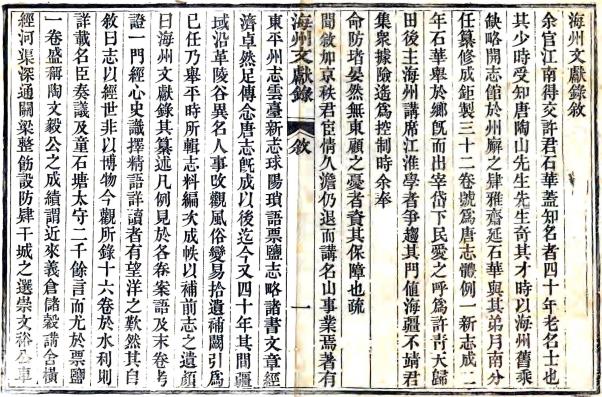 海州文獻錄敘
余官江南得交許君石華蓋知名者四十年老名士也
其少時受知唐陶山先生先生奇其才時以海州舊乘
缺略開志館於州廨之肆雅齋延石華與其弟月南分
任纂修成鉅製三十二卷號為唐志體例一新志成二
年石華舉於鄉旣而出宰岱下民愛之呼為許青天歸
田後主海州講席江淮學者爭趨其門値海疆不靖君
集衆據險遙為控制時余奉
命防堵晏然無東顧之憂者資其保障也疏
聞敘加京秩君宦情久澹仍退而講名山事業焉著有
海州文獻錄 敘 一
東平州志雲臺新志球陽瑣語票鹽志略諸書文章經
濟卓然足傳念唐志旣成以後迄今又四十年其間疆
域沿革陵谷異名人事改觀風俗變易拾遺補闕引為
己任乃舉平時所輯志料編次成帙以補前志之遺顏
曰海州文獻錄其纂述凡例見於各卷案語及末卷考
證一門經心史識擇精語詳讀者有望洋之歎然其自
敘曰志以經世非以博物今觀所錄十六卷於水利則
詳載名臣奏議及童石塘太守二千餘言而尤於票鹽
一卷盛稱陶文毅公之成績謂近來義倉儲穀講舍橫
經河渠深通闤梁整飭設防肆干城之選崇文裕公車